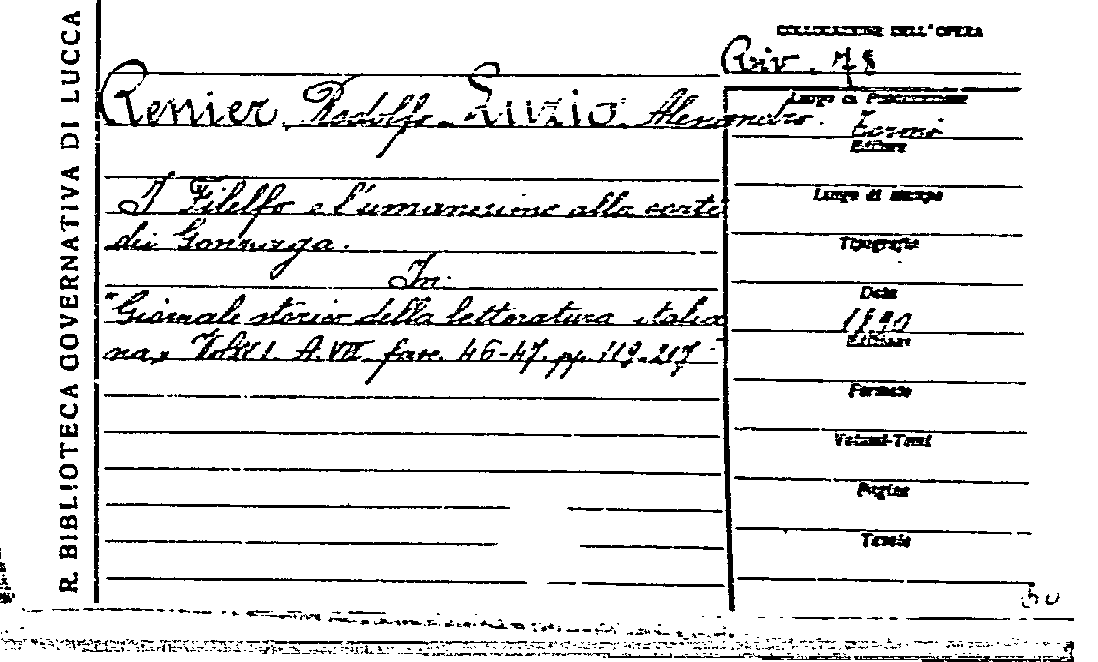 R. BIBLIOTECA GOVERNATIVA DI LUCCA
COLLOCAZIONE DELL'OPERA
Riv. 78
Renier Rodolfo - Luzio Alessandro.
I Filelfo e l'umanesimo alla corte
dei Gonzaga.
In:
"Giornale storico della letteratura italia
na," A. VIII fasc. 46-47. pp. 119-217
Luogo di Pubblicazione
Torino
Editore
Luogo di stampa
Tipografia
Data
1890
Edizione
Formato
Volumi-Tomi
Pagine
Tavole